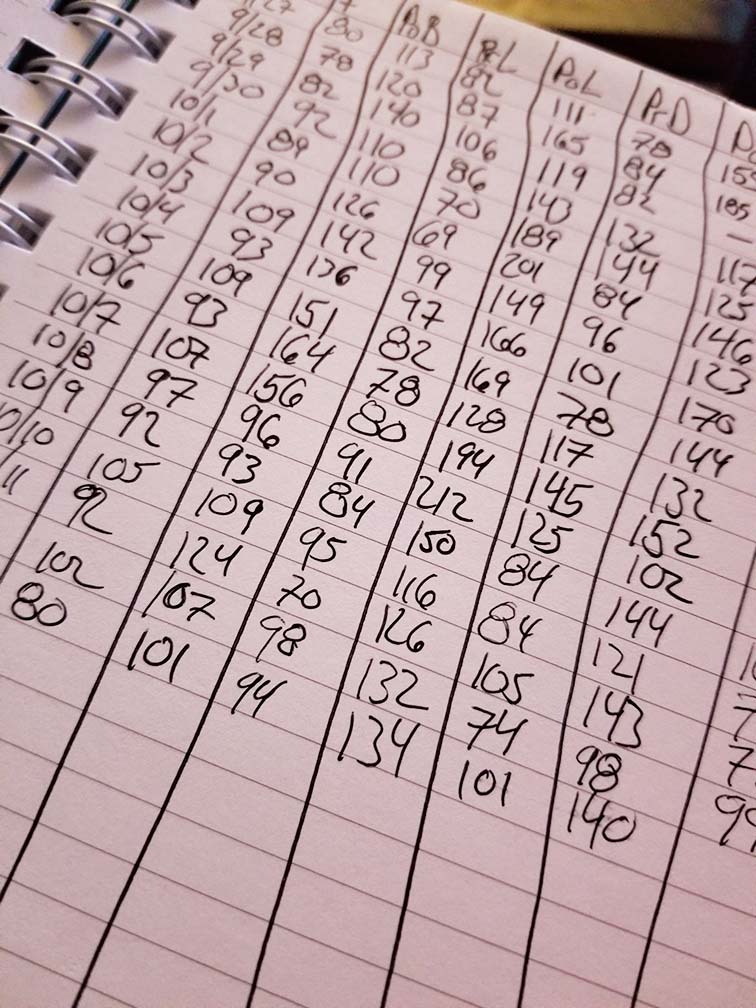 PoB PrL PoL PrD
9/27 80 113 82 111 78 155
9/28 78 120 87 165 84 185
9/29 82 140 106 119 82 —
9/30 92 110 86 143 132 117
10/1 89 110 70 189 144 125
10/2 90 126 69 201 84 146
10/3 109 142 99 149 96 123
10/4 93 136 97 166 101 170
10/5 109 151 82 169 78 144
10/6 93 164 78 128 117 132
10/7 107 156 80 194 145 152
10/8 97 96 91 212 125 102
10/9 92 93 84 150 84 144
10/10 105 109 95 116 84 121
/11 92 124 70 126 105 143
102 107 98 132 74 98
80 101 94 134 101 140